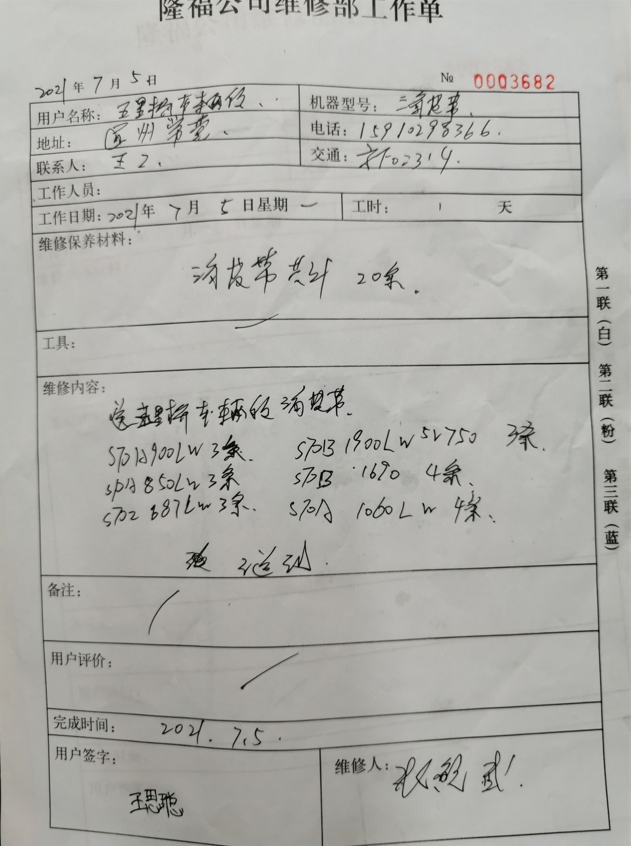 隆福公司维修部工作单
2021年7月5日 № 0003682
用户名称：五里桥车辆段 机器型号：三角皮带
地址： 电话：15910298366.
联系人：王工. 交通：京F02314.
工作人员：
工作日期：2021年7月5日星期一 工时： 1 天
维修保养材料：
三角皮带共计 20条.
工具：
维修内容：
送五里桥车辆段三角皮带.
SPA900LW 3条. 1900LW 5V750 3条
SPA850LW 3条 1690 4条.
SPZ 687LW 3条. SPA 1060LW 4条.
送到.
备注：
用户评价：
完成时间： 2021.7.5.
用户签字： 维修人：
王思聪
第一联（白） 第二联（粉） 第三联（蓝）